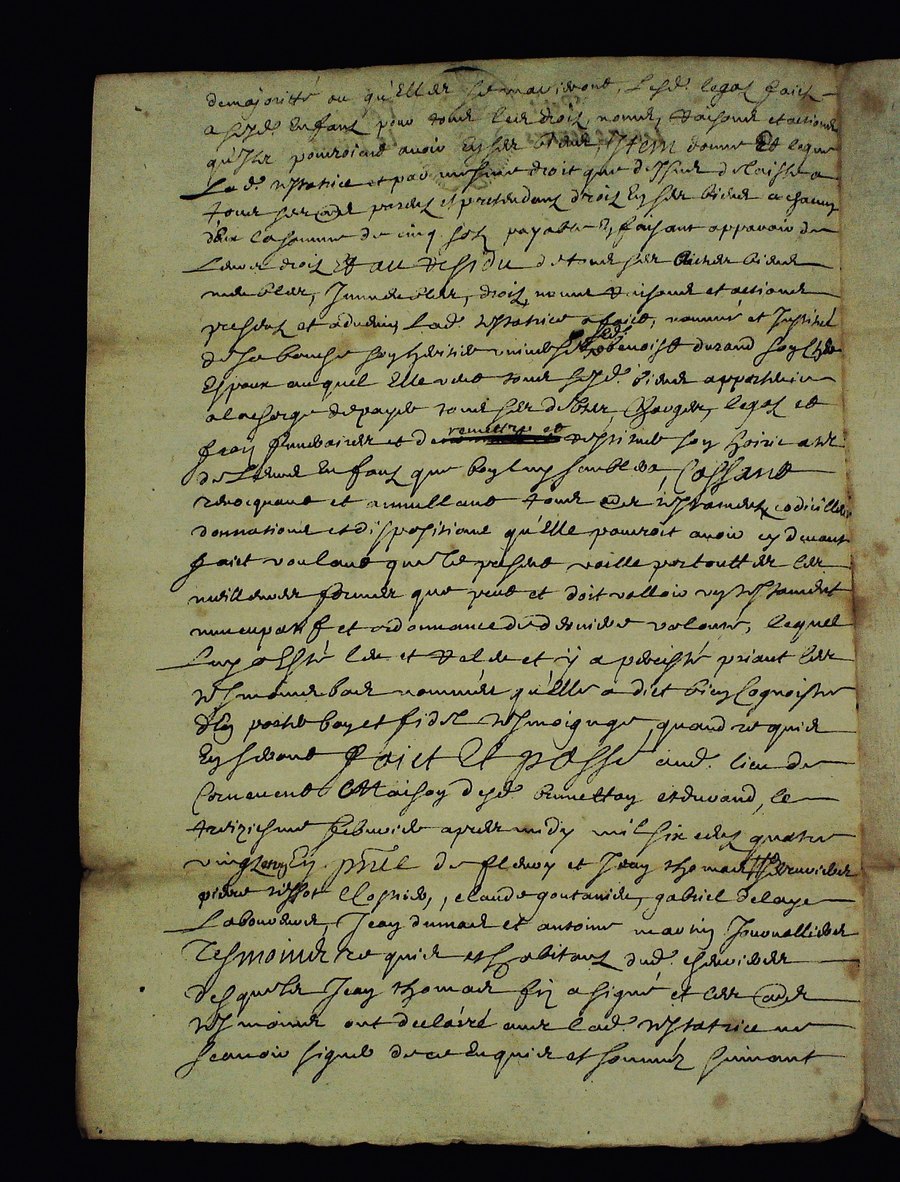 de majoritté ou qu'elles se marieront, lesd. legatz faictz
a sesd. enfans pour tous leurs droits, noms, raisons et actions
qu'ilz pourroient avoir en ses biens, Item donne et legue
Lad. testatrice et par mesme droit que dessus delaisse a
tous ses aultres parens et pretendans droit en ses biens a chacun
d'eux la somme de cinq solz payable en faisant apparoir de
Leurs droits Et au residu de tous ses aultres biens
meubles, Immeubles, droits, noms raisons et actions
presens et advenir, Lad. testatrice a faict, nommé et Institué
de sa bouche son heritier universel led. benoist durand son cher
Espoux auquel elle veut tous sesd. biens appartenir
a la charge de payer tous ses debtes, charges, legatz et
frais funebraires et de remettre et restituer son hoirie a tel
de Leurs enfans que bon luy semblera, Cassant
revocquant et annullant tous aultres testamens, codicilles
donnations et dispositions qu'elle pourroit avoir cy devant
faict voulant que le present vaille par touttes les
meilleures formes que peut et doit valloir un testament
nuncupatif et ordonnance de derniere volonté, lequel
Luy a esté leu et releu et y a percisté priant les
tesmoins bas nommés qu'elle a dict bien cognoistre
d'en porter bon et fidel tesmoignage, quand requis
En seront faict Et passé aud. lieu de
Maison desd. et durand, le
treiziesme febvrier apres midy mil six cens quatre
vingtz En p̃nce de fleury et Jean thomas
pierre, claude goutanier, gabriel delaye
Laboureurs, Jean dumas et antoine marin Journalliers
Tesmoins requis et habitans dud.
desquels Jean thomas filz a signé et les aultres
tesmoins ont declairé avec lad. testatrice ne
scavoir signer de ce enquis et sommés suivant